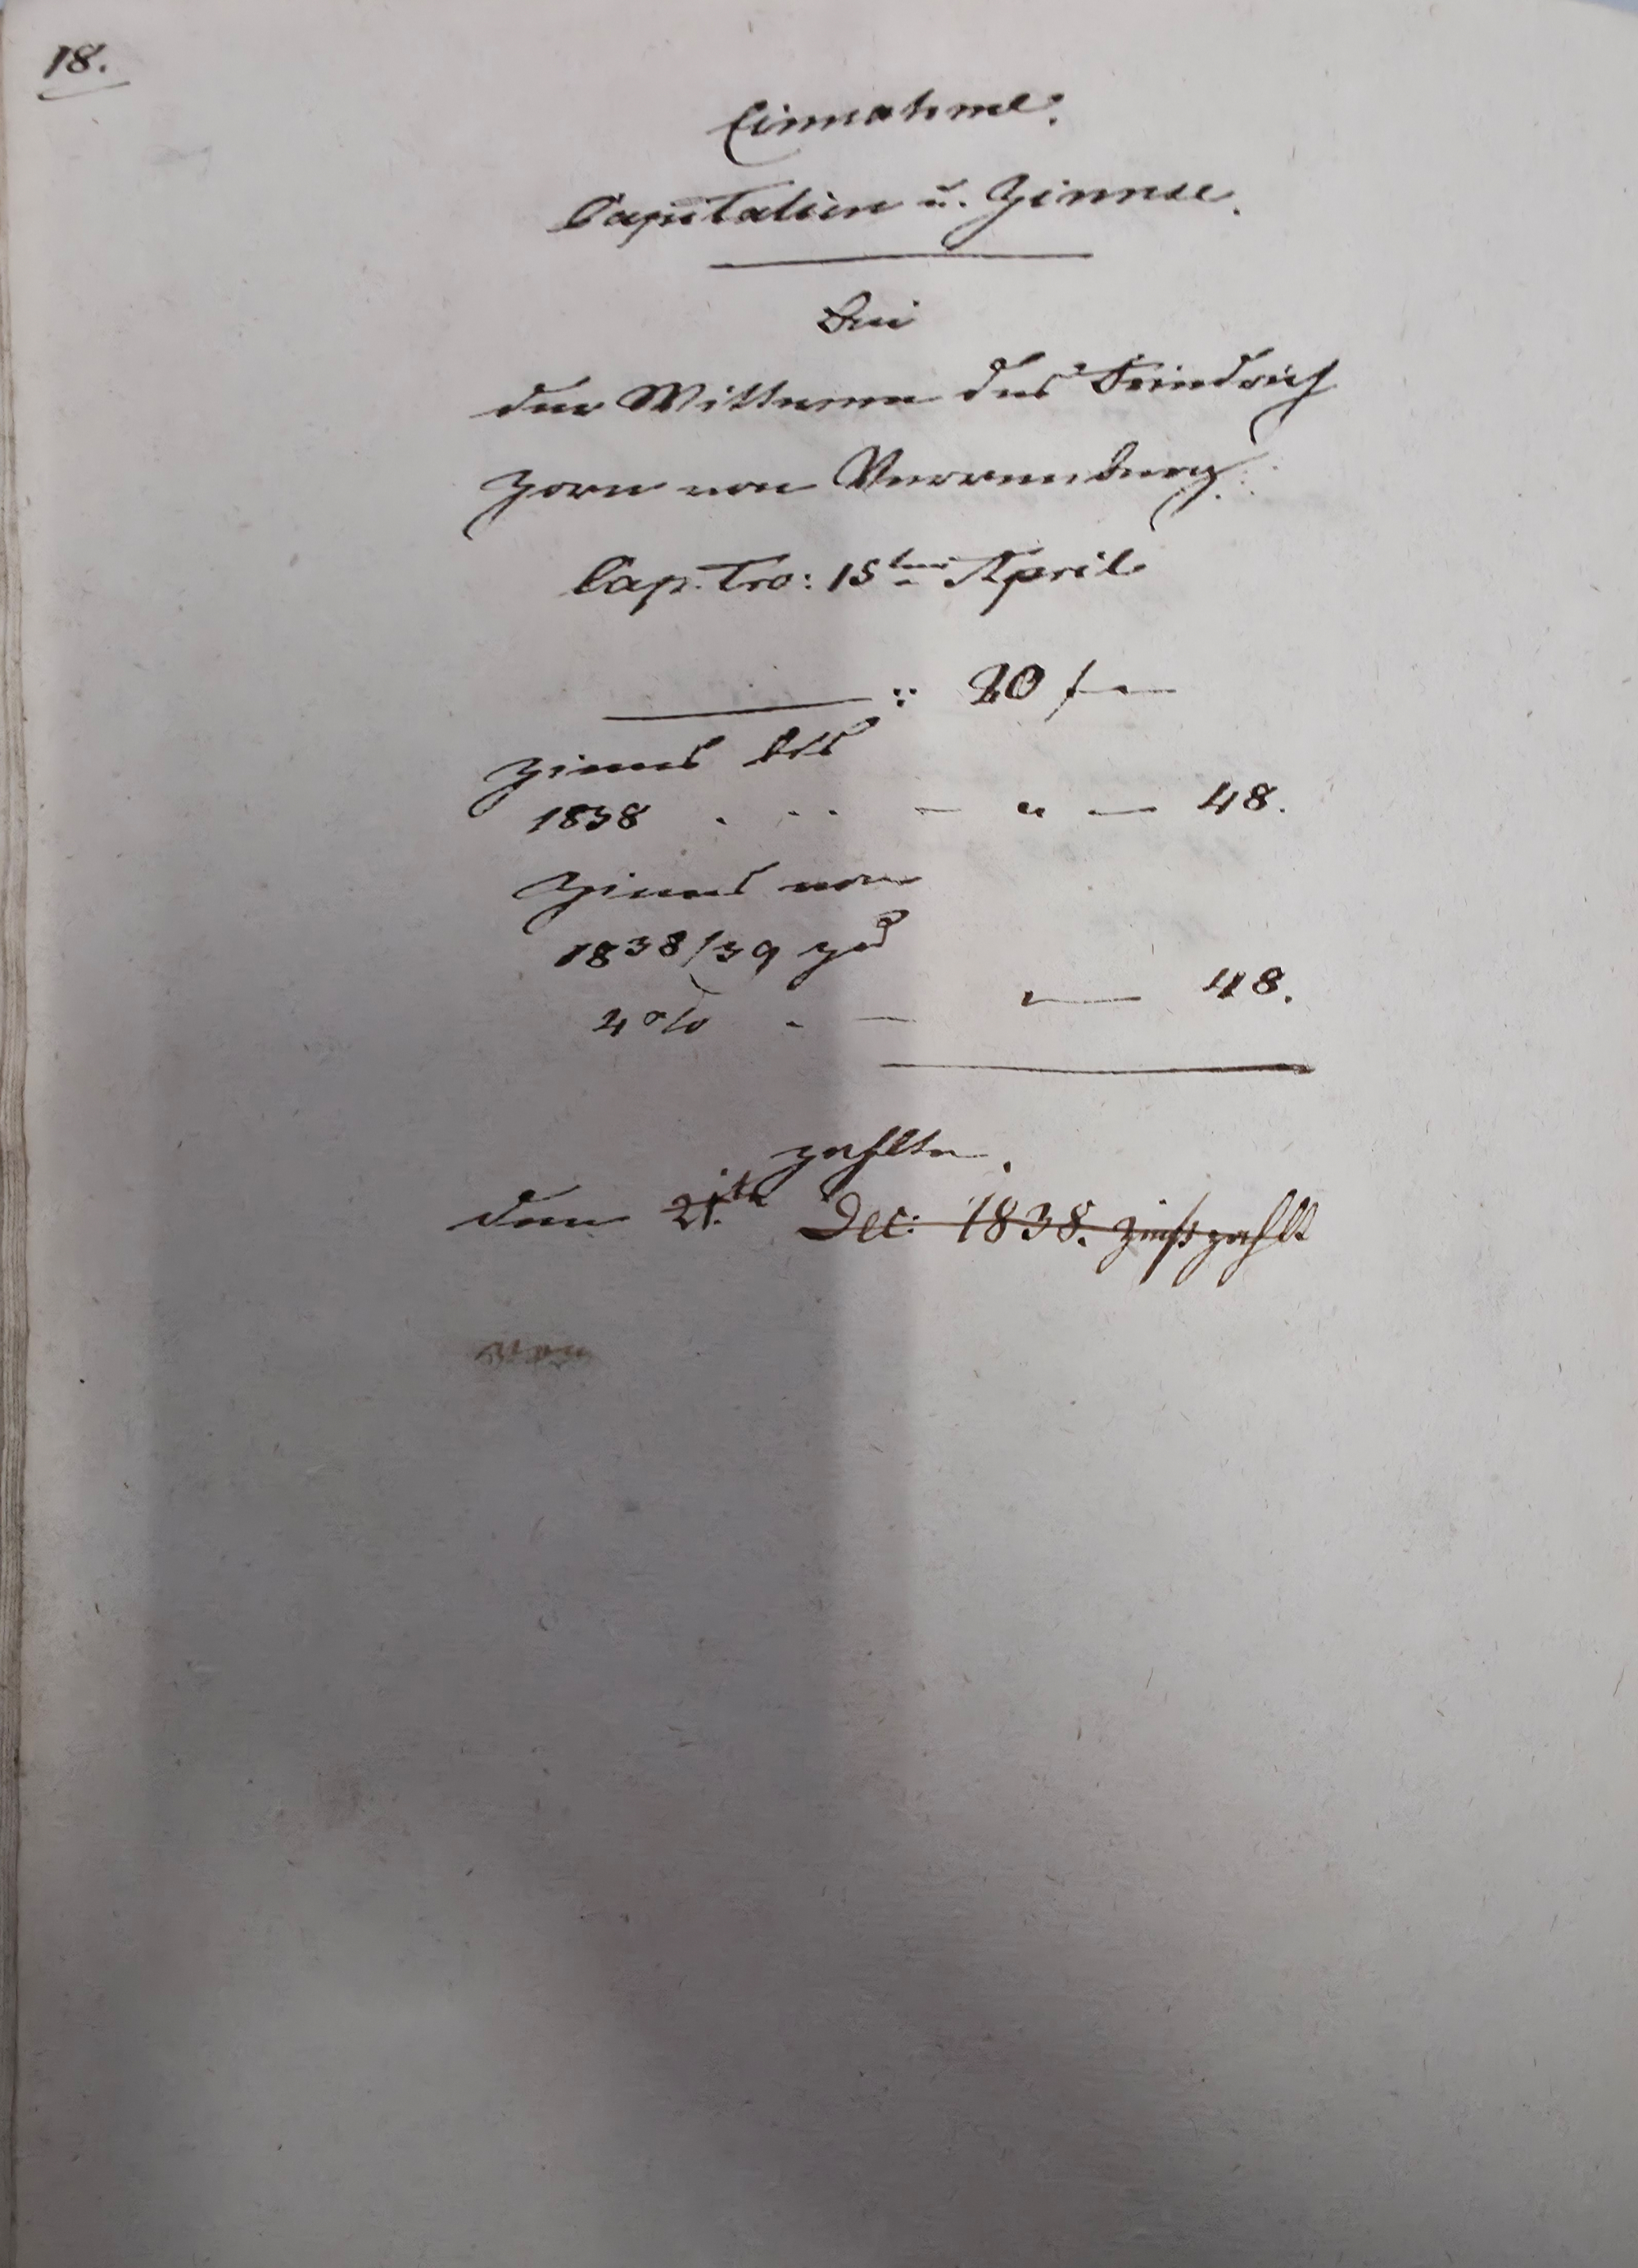 18.
Einnahme.
Capitalien u. Zinnse.
Bei
der Wittwen des Friedrich
Zorn von Verrenberg.
Cap. Tro: 15ten April
: 20 f —
Zinns bis
1838 . . . — " — 48.
Zinns von
1838/39 zu
4 % . — " — 48.
zahlte.
den 21.ten Dec: 1838. Zinß zahlt